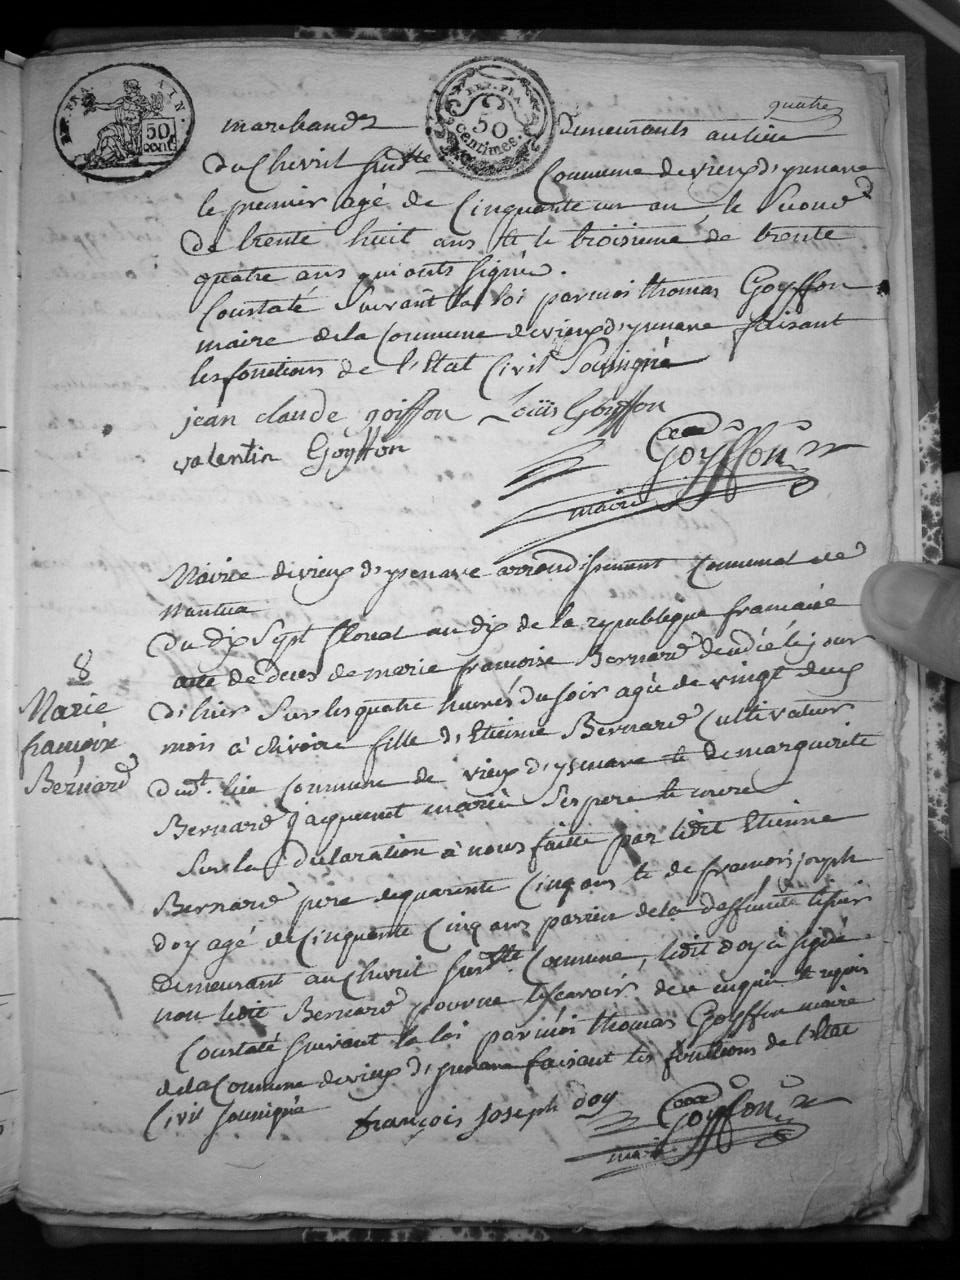 quatre
REP. FRA. 50 cent. AIN.
REP. FRA. 50 centimes.
marchands demeurants au lieu
du Chevril susdte Commune de vieux d'ysenave
le premier agé de Cinquante un an le second
de trente huit ans et le troisieme de trente
quatre ans qui onts signés.
Constaté Suivant la loi par moi thomas Goyffon
maire de la Commune de vieux d'ysenave faisant
les fonctions de l'Etat Civil Soussigné
jean claude goiffon Louis Goyffon
valentin Goyffon Goyffon
maire
Mairie de vieux d'ysenave arrondissement Communal de
Nantua
Du dix Sept floreal an dix de la republique francaise
8
Marie
francoise
Bernard
acte de deces de marie francoise Bernard decedé le jour
d'hier Sur les quatre heures du soir agée de vingt deux
mois a fille d'Etienne Bernard Cultivateur
dudt. lieu Commune de vieux d'ysenave et de marguerite
Bernard Jaquemet mariés Ses pere et mere
Sur la declaration à nous faitte par ledit Etienne
Bernard pere de quarente Cinq ans et de francois joseph
doy agé de Cinquente Cinq ans de la deffunte
demeurant au Chevril susdte Commune, ledit doy à signé
non ledit Bernard pour ne scavoir, de ce enquis et requis
Constaté suivant la loi par moi thomas Goyffon maire
de la Commune de vieux d'ysenave faisant les fonctions de l'Etat
Civil soussigné françois Joseph doy Goyffon
maire